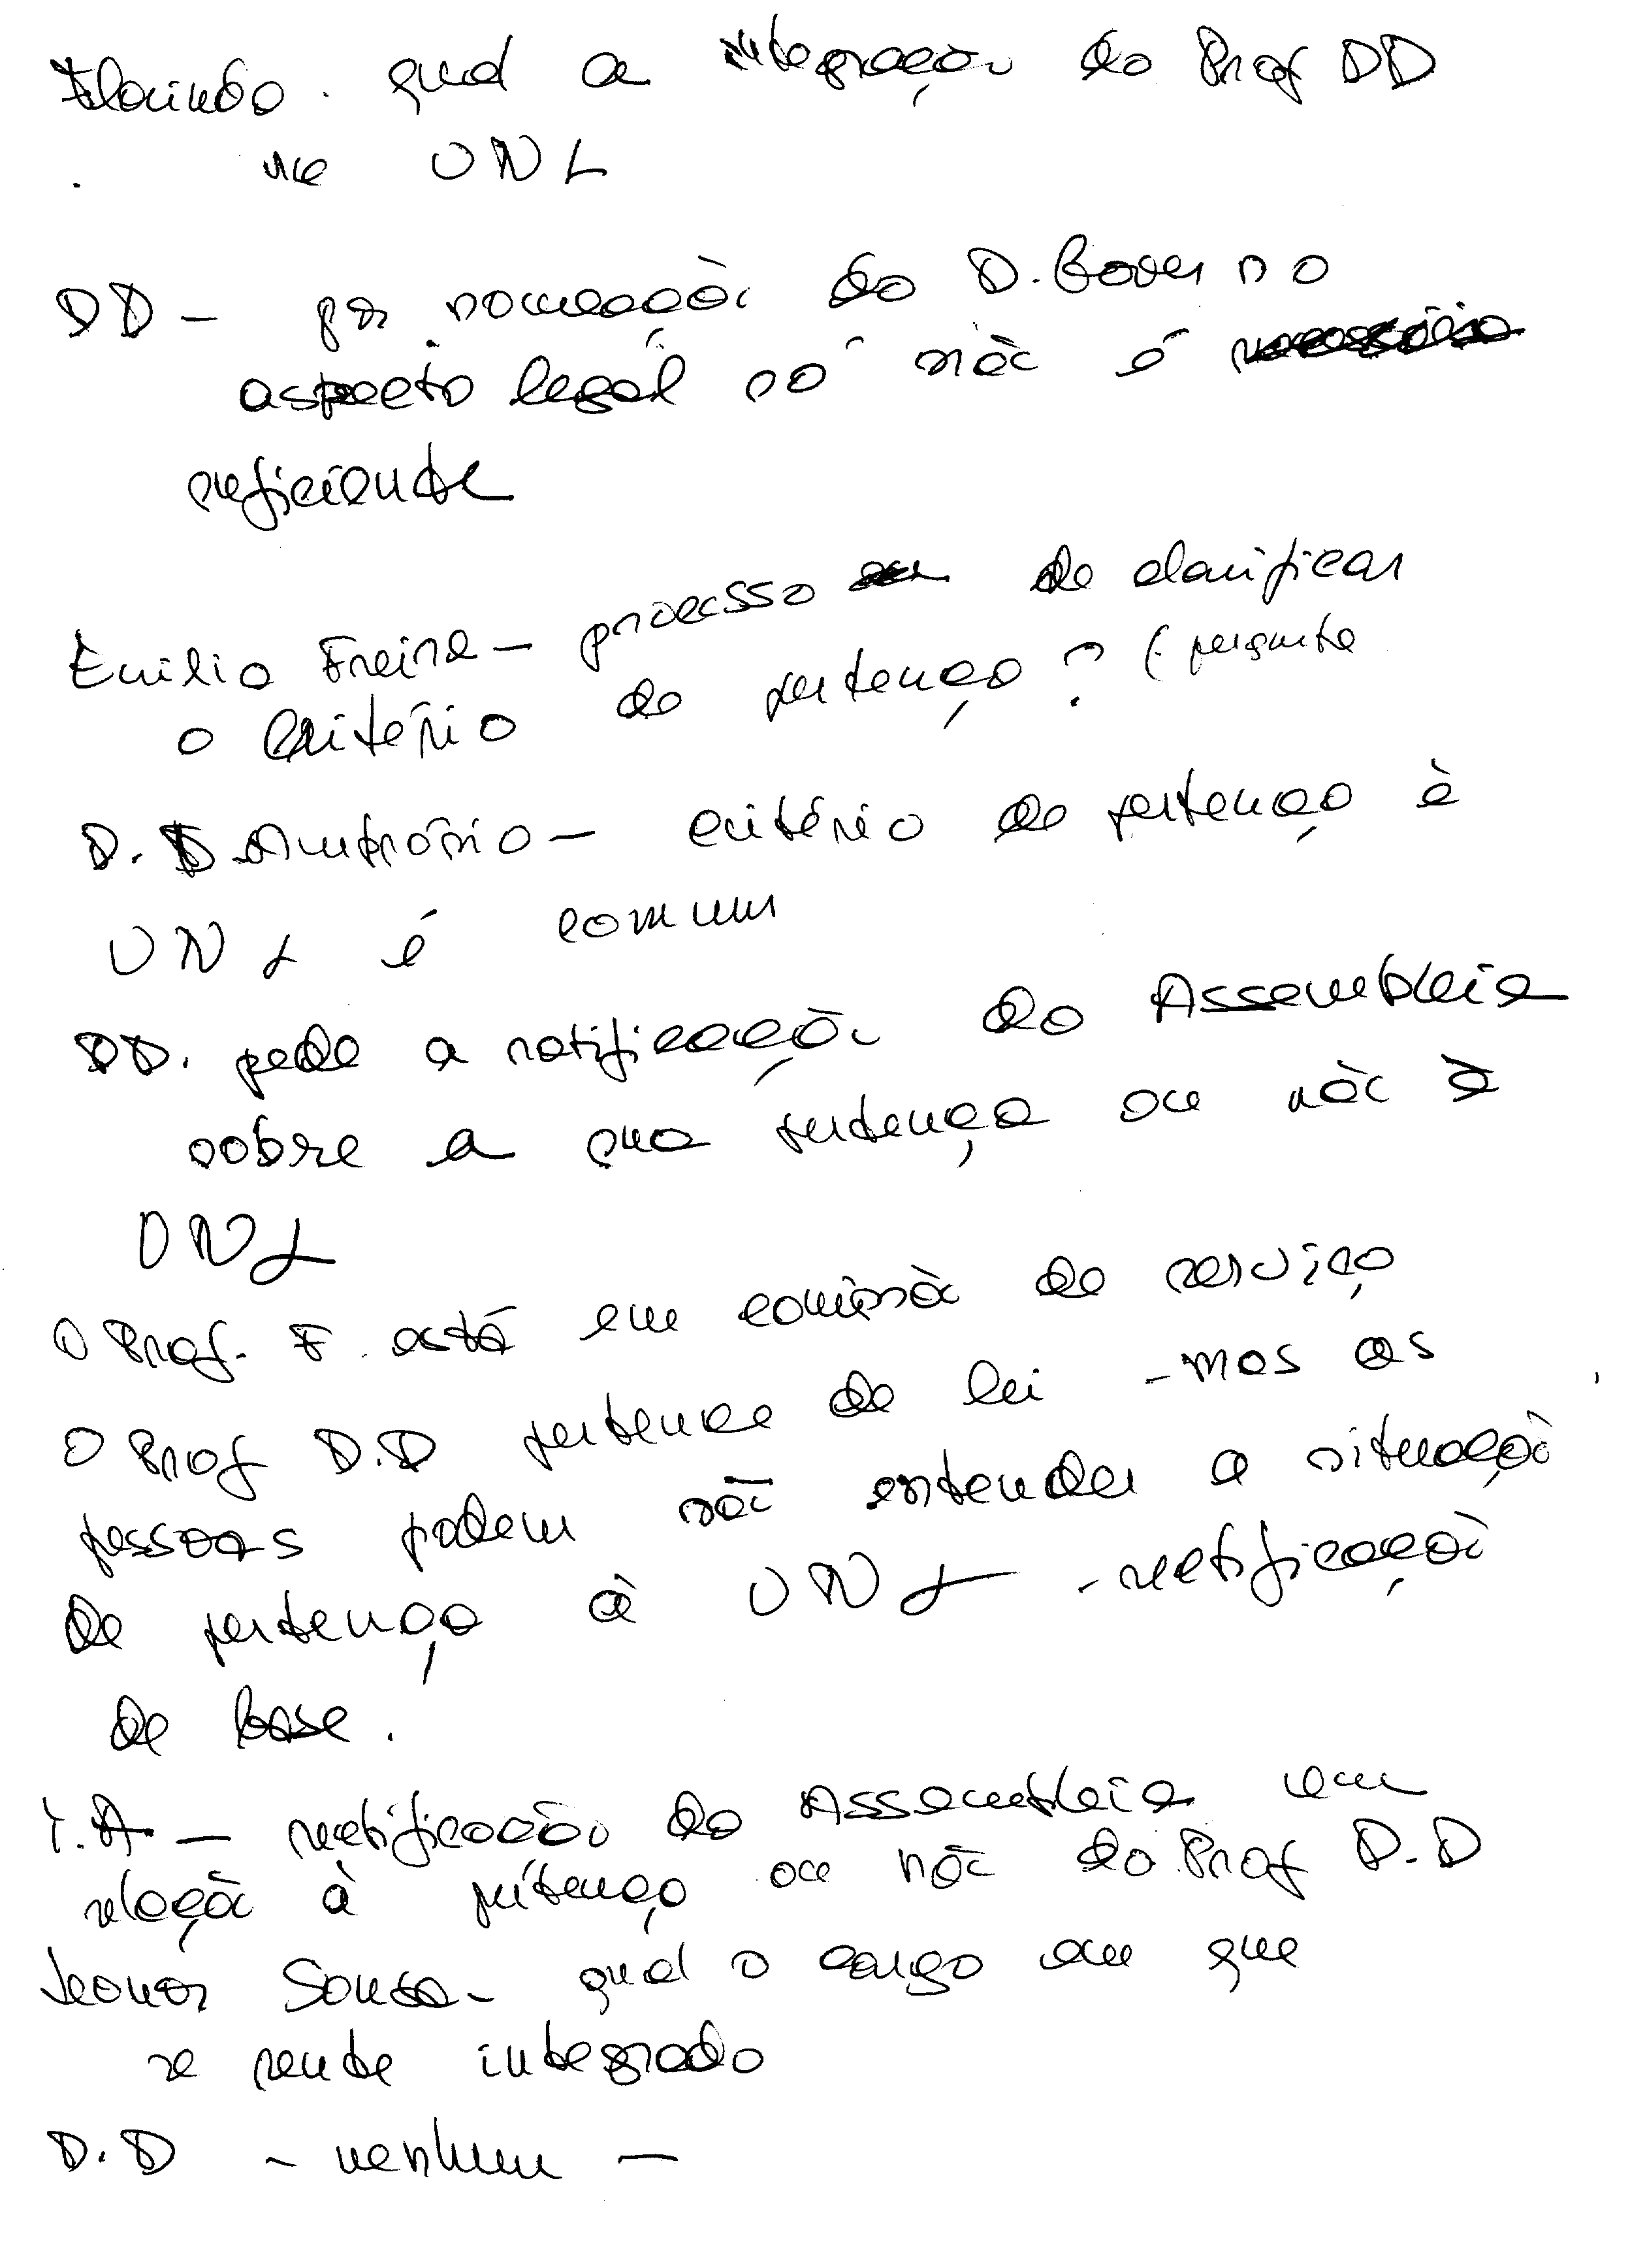 Florindo. qual a integração do Prof DD
na UNL
DD - por nomeação do D. Governo
aspecto legal só não é
suficiente
Emílio Freire - processo de clarificar
o critério de pertença? (pergunta
D. D. Ambrósio - critério de pertença à
UNL é comum
DD. pede a ratificação da Assembleia
sobre a sua pertença ou não à
UNL
O Prof. F. está em comissão de serviço
O Prof D.D pertence de lei - mas as
pessoas podem não entender a situação
de pertença à UNL - ratificação
de base.
T.A - ratificação da Assembleia em
relação à pertença ou não do Prof D.D
Leonor Sousa - qual o cargo em que
se sente integrado
D.D - nenhum -